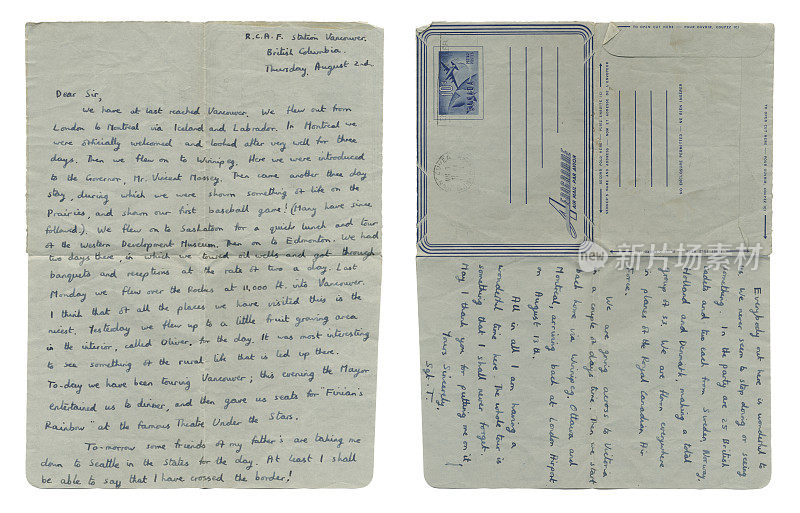 R.C.A.F. Station Vancouver,
British Columbia.
Thursday, August 2nd.
Dear Sir,
We have at last reached Vancouver. We flew out from
London to Montreal via Iceland and Labrador. In Montreal we
were officially welcomed and looked after very well for three
days. Then we flew on to Winnipeg. Here we were introduced
to the Governor, Mr. Vincent Massey. Then came another three day
stay, during which we were shown something of life on the
Prairies, and shown our first baseball game! (Many have since
followed.). We flew on to Saskatoon for a quick lunch and tour
of the Western Development Museum. Then on to Edmonton. We had
two days there, in which we toured oil wells and got through
banquets and receptions at the rate of two a day. Last
Monday we flew over the Rockies at 11,000 ft. into Vancouver.
I think that of all the places we have visited this is the
nicest. Yesterday we flew up to a little fruit growing area
in the interior, called Oliver, for the day. It was most interesting
to see something of the rural life that is led up there.
To-day we have been touring Vancouver; this evening the Mayor
entertained us to dinner, and then gave us seats for "Finian's
Rainbow" at the famous Theatre Under the Stars.
To-morrow some friends of my father's are taking me
down to Seattle in the States for the day. At least I shall
be able to say that I have crossed the border!
TO OPEN CUT HERE — POUR OUVRIR, COUPEZ ICI
TO OPEN CUT HERE — POUR OUVRIR, COUPEZ ICI
10¢
AEROGRAMME
新图网 视频素材
new
Everybody out here is wonderful to
us. We never seem to stop doing or seeing
something. In the party are 25 British
cadets and two each from Sweden, Norway,
Holland and Denmark, making a total
group of 33. We are flown everywhere
in planes of the Royal Canadian Air
We are going across to Victoria
in a couple of days time. Then we start
back home via Winnipeg, Ottawa and
Montreal arriving back at London Airport
on August 13th.
All in all I am having a
wonderful time here. The whole tour is
something that I shall never forget.
May I thank you for putting me on it!
Yours Sincerely,
Sgt. T